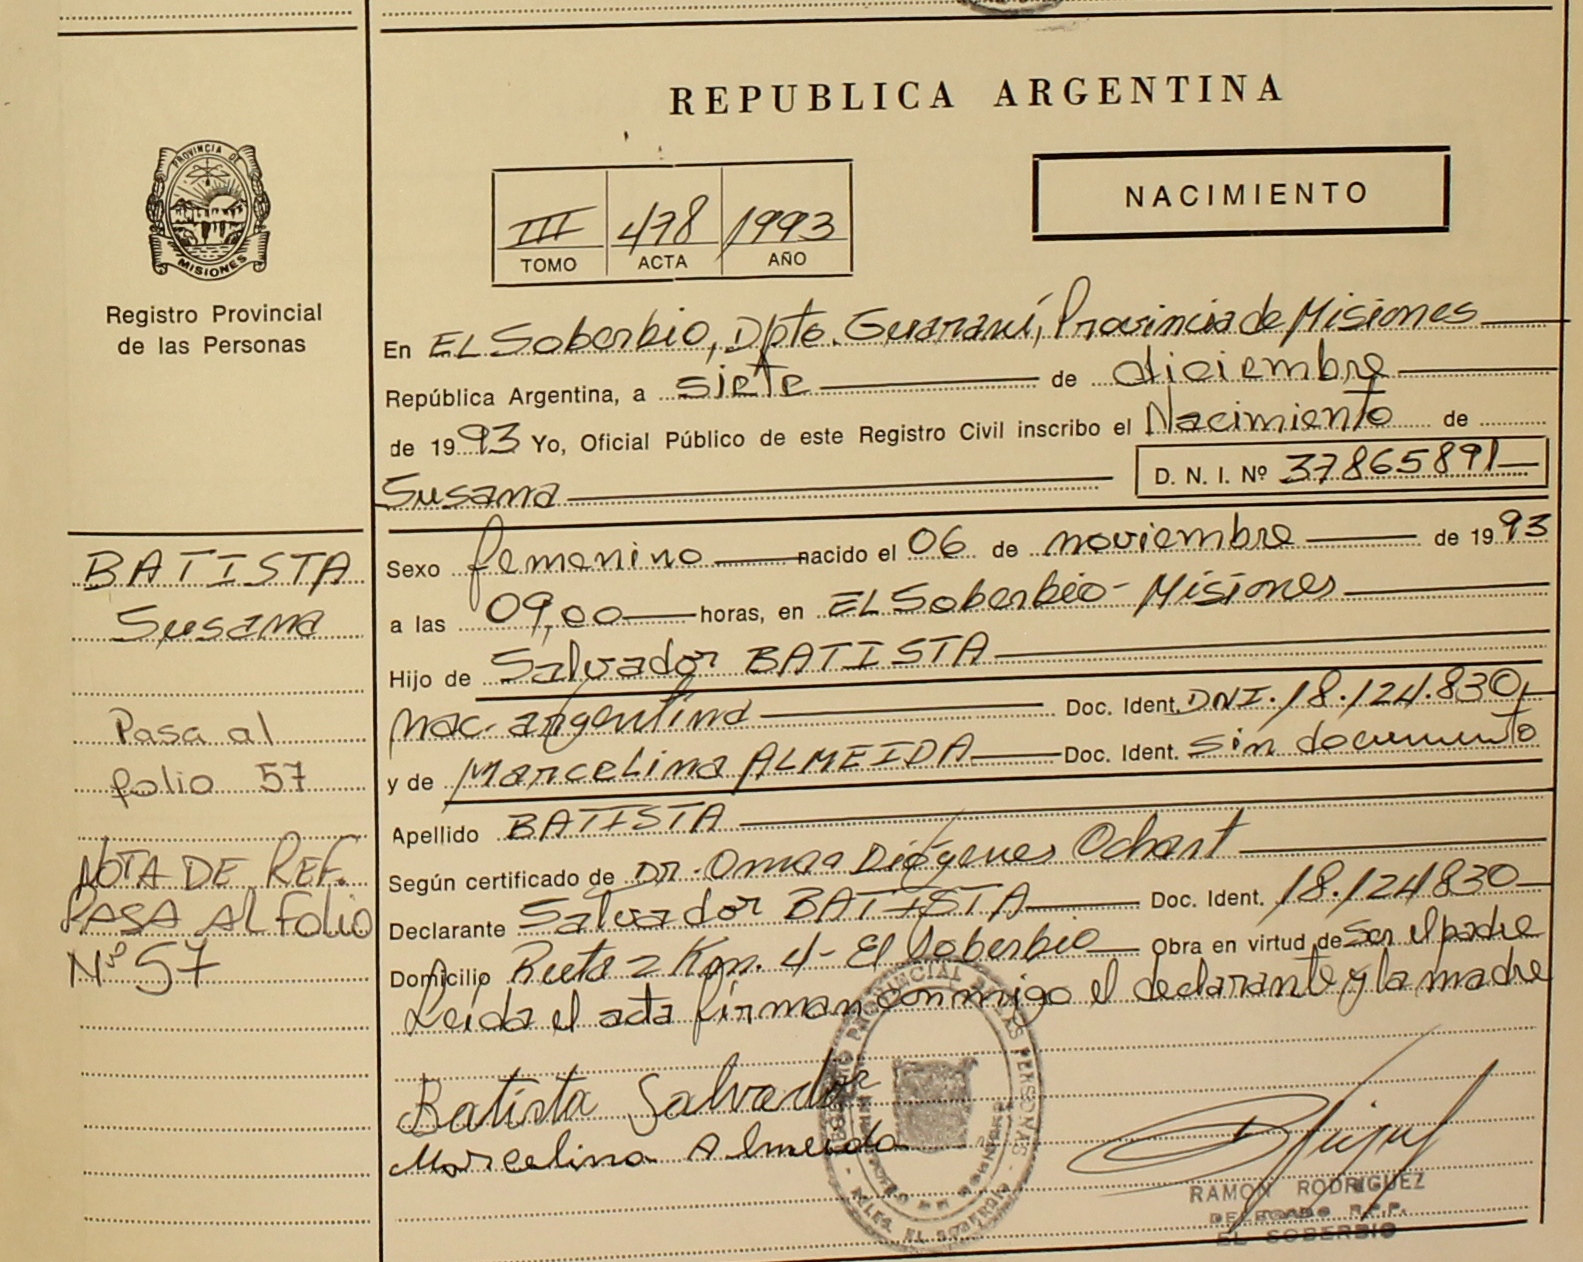 REPUBLICA ARGENTINA
PROVINCIA DE
MISIONES
Registro Provincial
de las Personas
III 478 1993
TOMO ACTA AÑO
NACIMIENTO
En EL Soberbio, Dpto. Guaraní, Provincia de Misiones
República Argentina, a siete de diciembre
de 1993 Yo, Oficial Público de este Registro Civil inscribo el Nacimiento de
Susana D. N. I. Nº 37865891
BATISTA
Susana
Pasa al
folio 57
NOTA DE REF.
PASA AL Folio
Nº 57
Sexo femenino nacido el 06 de noviembre de 1993
a las 09,00 horas, en EL Soberbio - Misiones
Hijo de Salvador BATISTA
nac. argentina Doc. Ident. DNI. 18.124.830,
y de Marcelina ALMEIDA Doc. Ident. sin documento
Apellido BATISTA
Según certificado de DR. Omar Diógenes Ochart
Declarante Salvador BATISTA Doc. Ident. 18.124830
Domicilio Ruta 2 Km. 4 - El Soberbio Obra en virtud de ser el padre
Leída el acta firman conmigo el declarante y la madre
Batista Salvador
Marcelina Almeida
REGISTRO PROVINCIAL DE LAS PERSONAS
EL SOBERBIO
RAMON RODRIGUEZ
DELEGADO R.P.P.
EL SOBERBIO